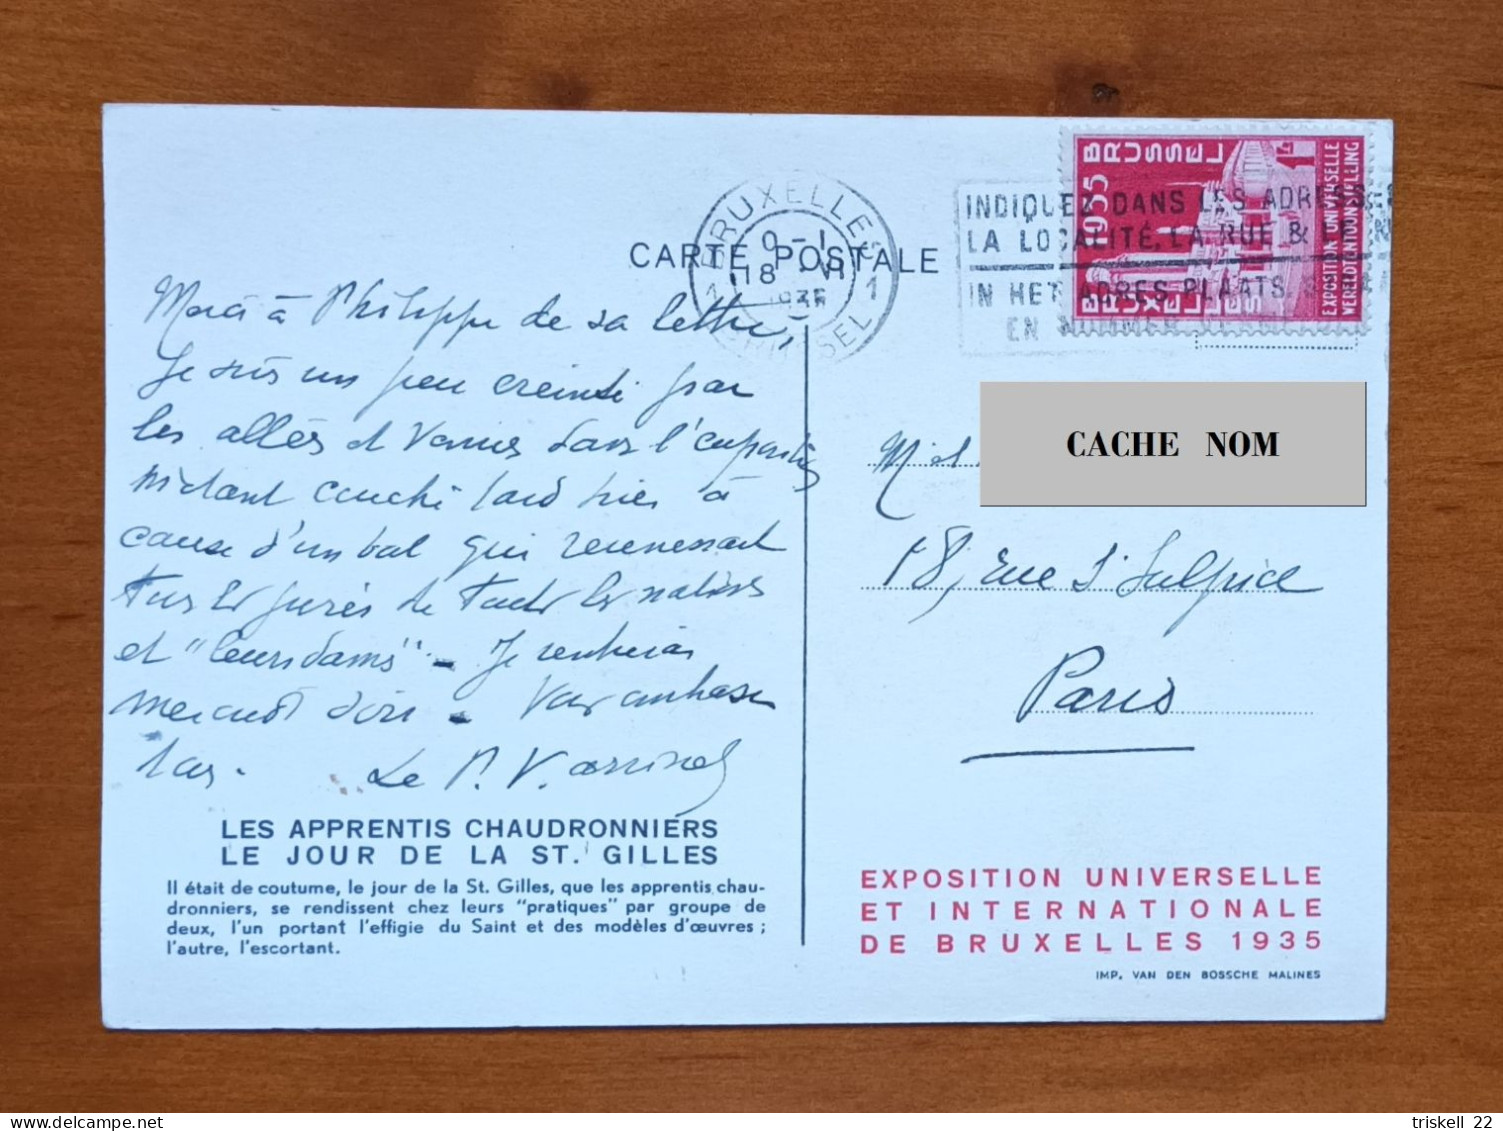 CARTE POSTALE
BRUXELLES 1
0-1
18 VI
1935
1 BRUSSEL
INDIQUEZ DANS LES ADRESSES
LA LOCALITÉ, LA RUE &
IN HET ADRES PLAATS
EN NUMMER
1935 BRUSSEL
BRUXELLES
EXPOSITION UNIVERSELLE
WERELDTENTOONSTELLING
Merci à Philippe de sa lettre,
Je suis un peu éreinté par
les allées et venues dans l'exposition
m'étant couché tard hier à
cause d'un bal qui réunissait
tous les jurés de toutes les nations
et "leurs dames" - Je rentrerai
mercredi soir - Vous embrasse
tous. Le P. V.
CACHE NOM
M et
18, rue St Sulpice
Paris
LES APPRENTIS CHAUDRONNIERS
LE JOUR DE LA ST. GILLES
Il était de coutume, le jour de la St. Gilles, que les apprentis chau-
dronniers, se rendissent chez leurs "pratiques" par groupe de
deux, l'un portant l'effigie du Saint et des modèles d'œuvres ;
l'autre, l'escortant.
EXPOSITION UNIVERSELLE
ET INTERNATIONALE
DE BRUXELLES 1935
IMP. VAN DEN BOSSCHE MALINES
triskell 22